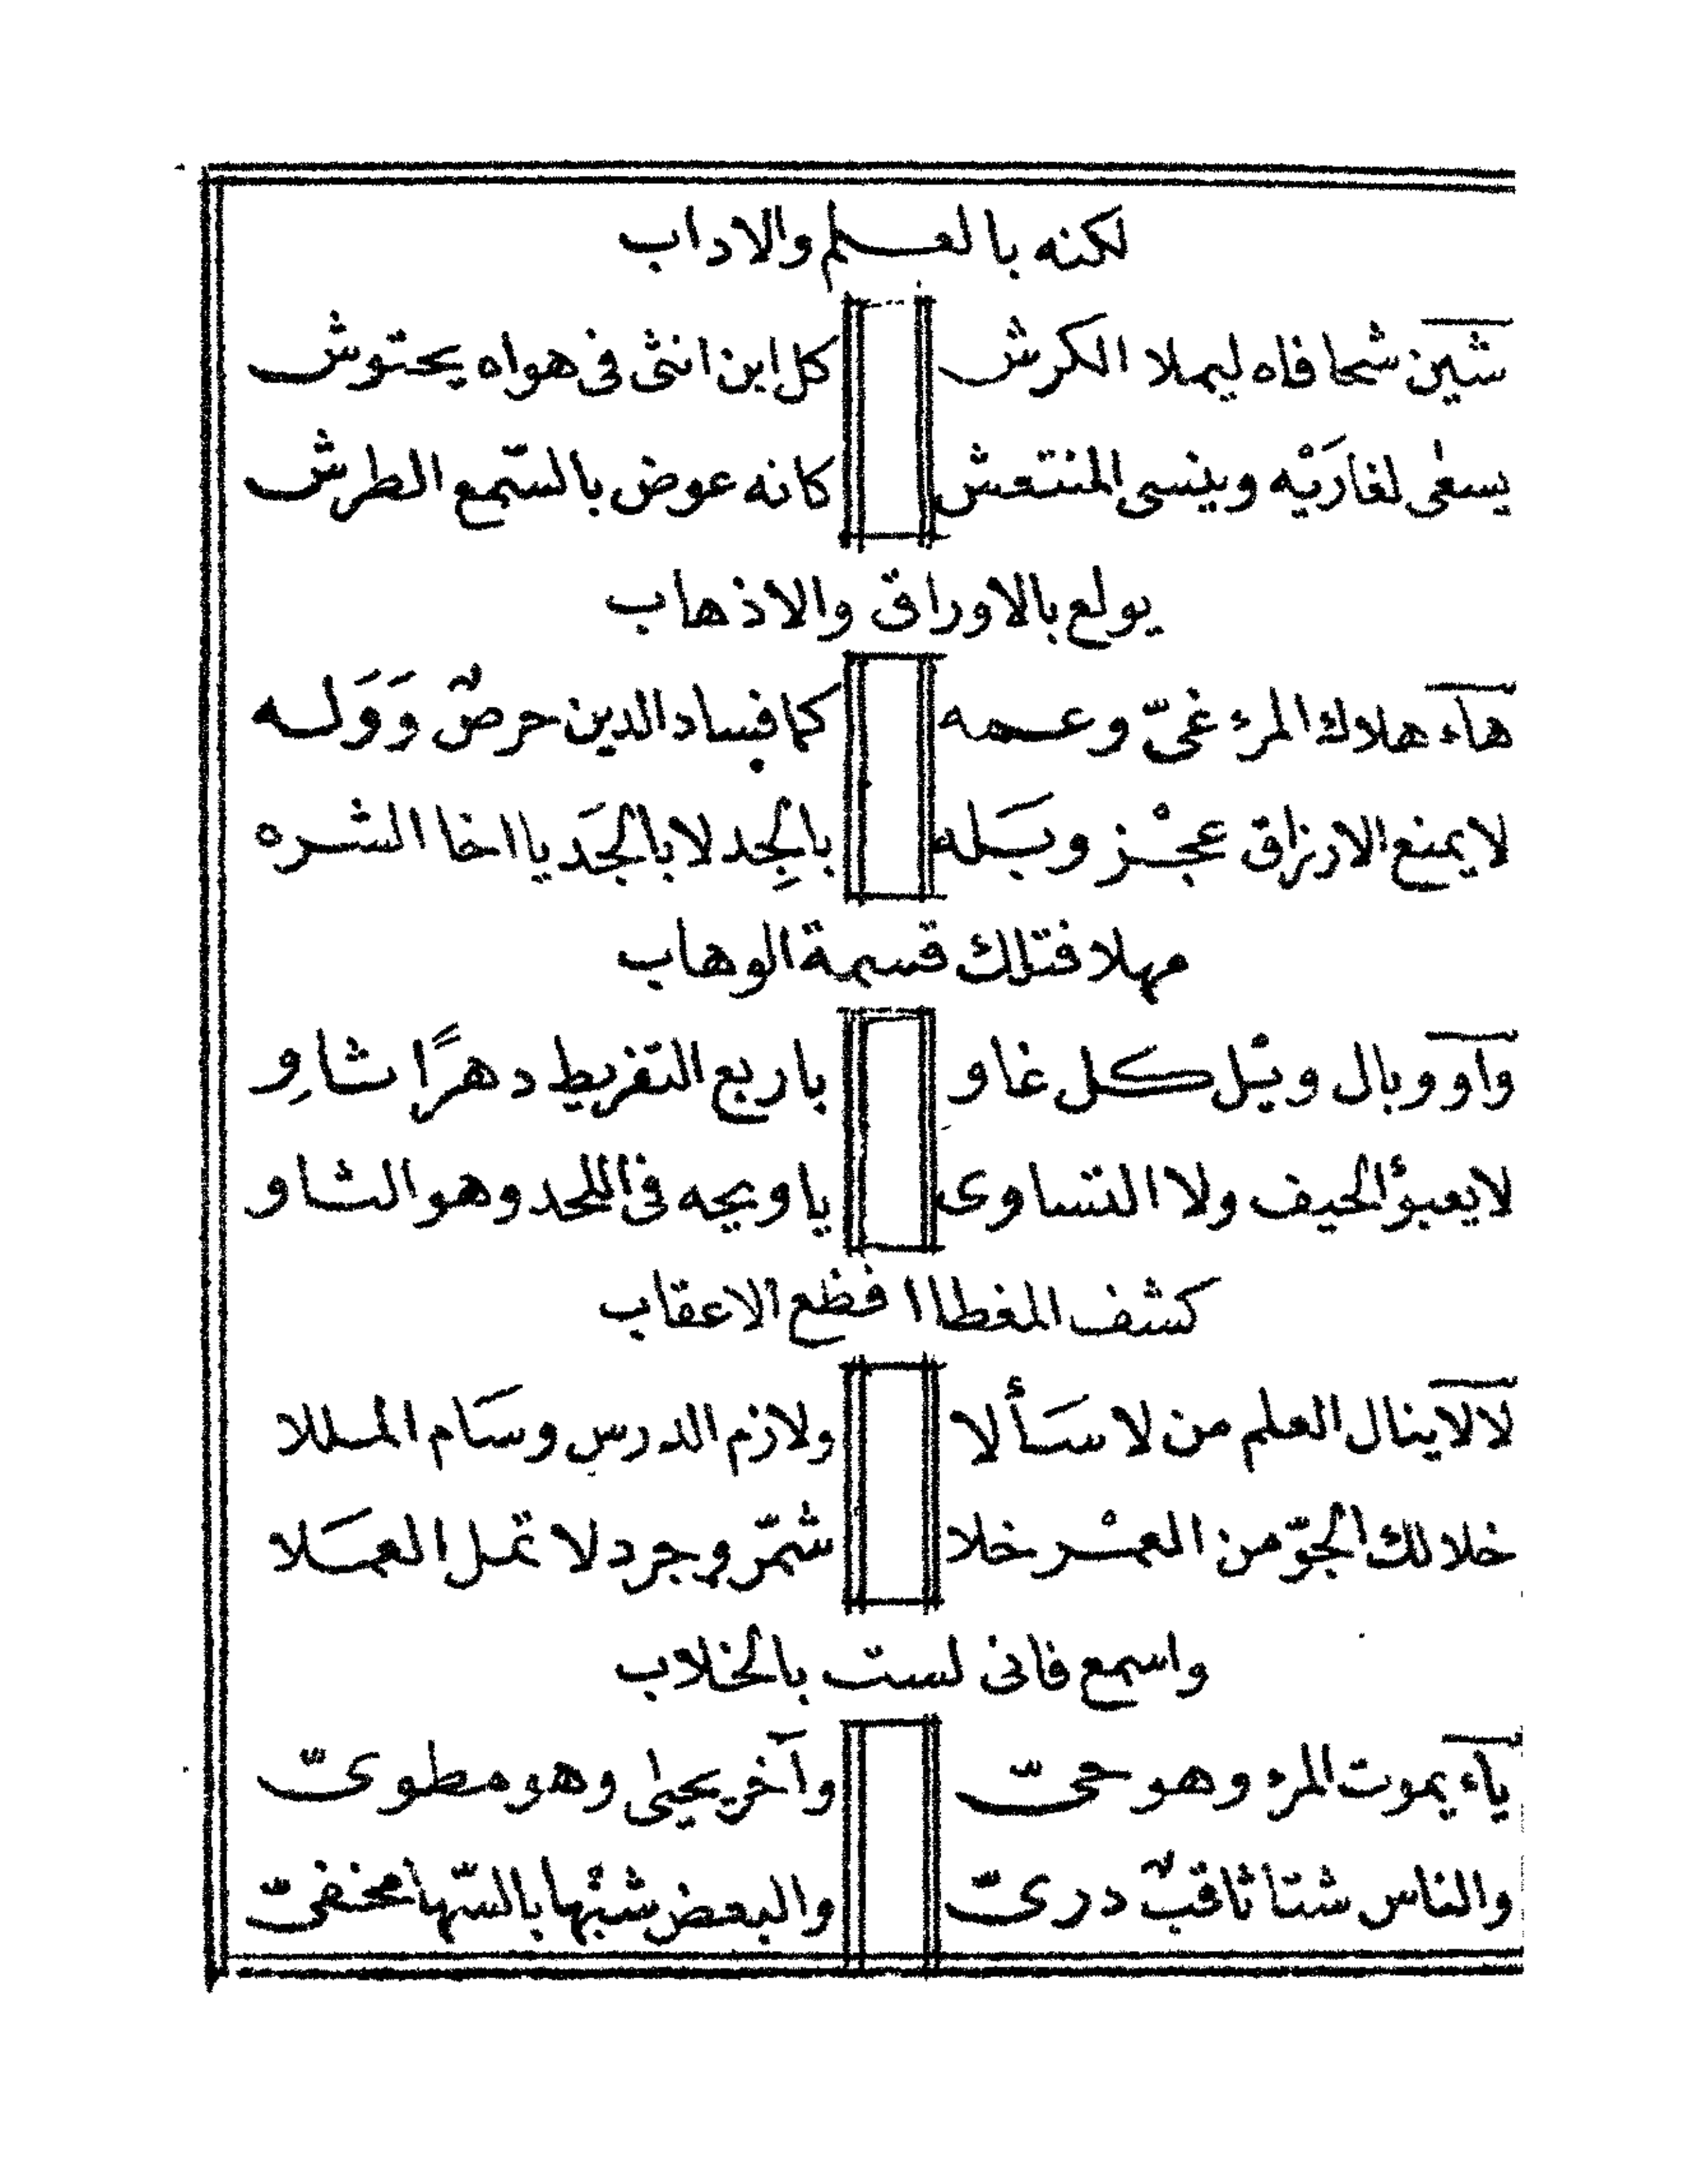 لكنه بالعلم والاداب
شين شحا فاه ليملا الكرش كل ابن انثى فى هواه يحتوش
يسعٰى لغارَيْه وينسى المنتعش كانه عوض بالسّمع الطرش
يولع بالاوراق والاذهاب
هاء هلاك المرء غىّ وعمه كما فساد الدين حرصٌ وَوَله
لا يمنع الارزاق عجْز وبَله بالجِد لا بالجَد يا اخا الشره
مهلا فتلك قسمة الوهاب
واو وبال ويْل كل غاو باربع التفريط دهرًا شاوِ
لا يعبؤ الحيف ولا التساوى يا ويحه فى اللحد وهو الثاو
كشف الغطا افظع الاعقاب
لا لا ينال العلم من لا سَألا ولازم الدرس وسَام المللا
خلا لك الجوّ من العمْر خلا شمّر وجرد لا تمل العمَلا
واسمع فانى لست بالخلاب
ياء يموت المرء وهو حىّ وآخر يحيٰى وهو مطوىّ
والناس شتا ثاقبٌ درىّ والبعض شبْها بالسّها مختفىّ